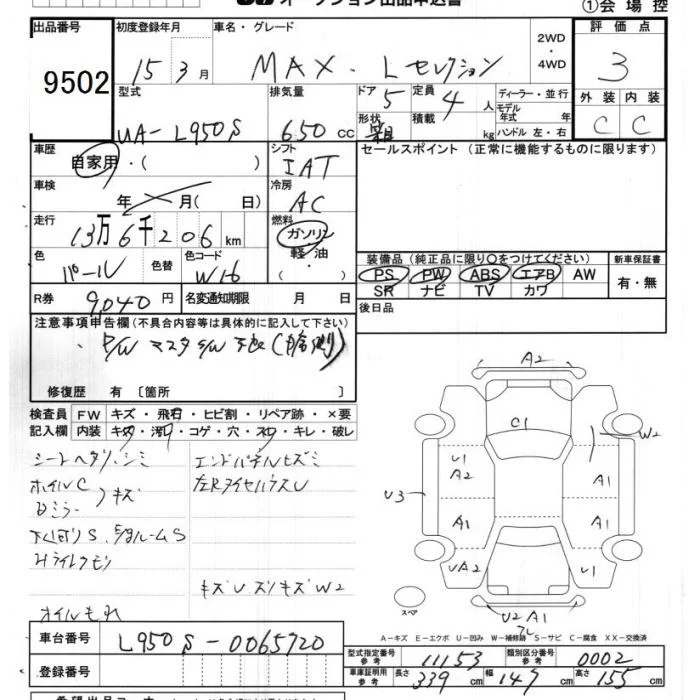 オークション出品申込書 ①会場控
出品番号 初度登録年月 車名・グレード 2WD・4WD 評価点
9502 15 3月 MAX・Lセレクション 3
型式 排気量 ドア 5 定員 4人 ディーラー・並行 外装 内装
UA-L950S 650cc 形状 積載 kg モデル年式 年 ハンドル 左・右 C C
車歴 自家用・( ) シフト IAT セールスポイント (正常に機能するものに限ります)
車検 年 月( 日) 冷房 AC
走行 13万6千206km 燃料 ガソリン 軽油 ・( )
色 パール 色替 色コード W16
装備品 (純正品に限り○をつけてください) 新車保証書
PS PW ABS エアB AW 有・無
SR ナビ TV カワ
R券 9,040円 名変通知期限 月 日 後日品
注意事項申告欄 (不具合内容等は具体的に記入して下さい)
P/W マスタ
修復歴 有 〔箇所 〕
検査員 FW キズ・飛石・ヒビ割・リペア跡・×要
記入欄 内装 キズ・汚れ・コゲ・穴・スレ・キレ・破レ
シートヘタリ、シミ エンドパネルヒズミ
ホイルC キズ
Dミラー
左Rタイヤハウス U
下回りS
Hライトクモリ
キズU ズリキズW2
オイルもれ
A2
C1
W2
U1
A2
A1
U3
A1
A1
UA2
U1
スペア
U2 A1
A-キズ E-エクボ U-凹み W-補修跡 S-サビ C-腐食 XX-交換済
車台番号 L950S-0065720
型式指定番号 参考 11153 類別区分番号 参考 0002
登録番号 車庫証明用 参考 長さ 339cm 幅 147cm 高さ 155cm
希望出品コーナー